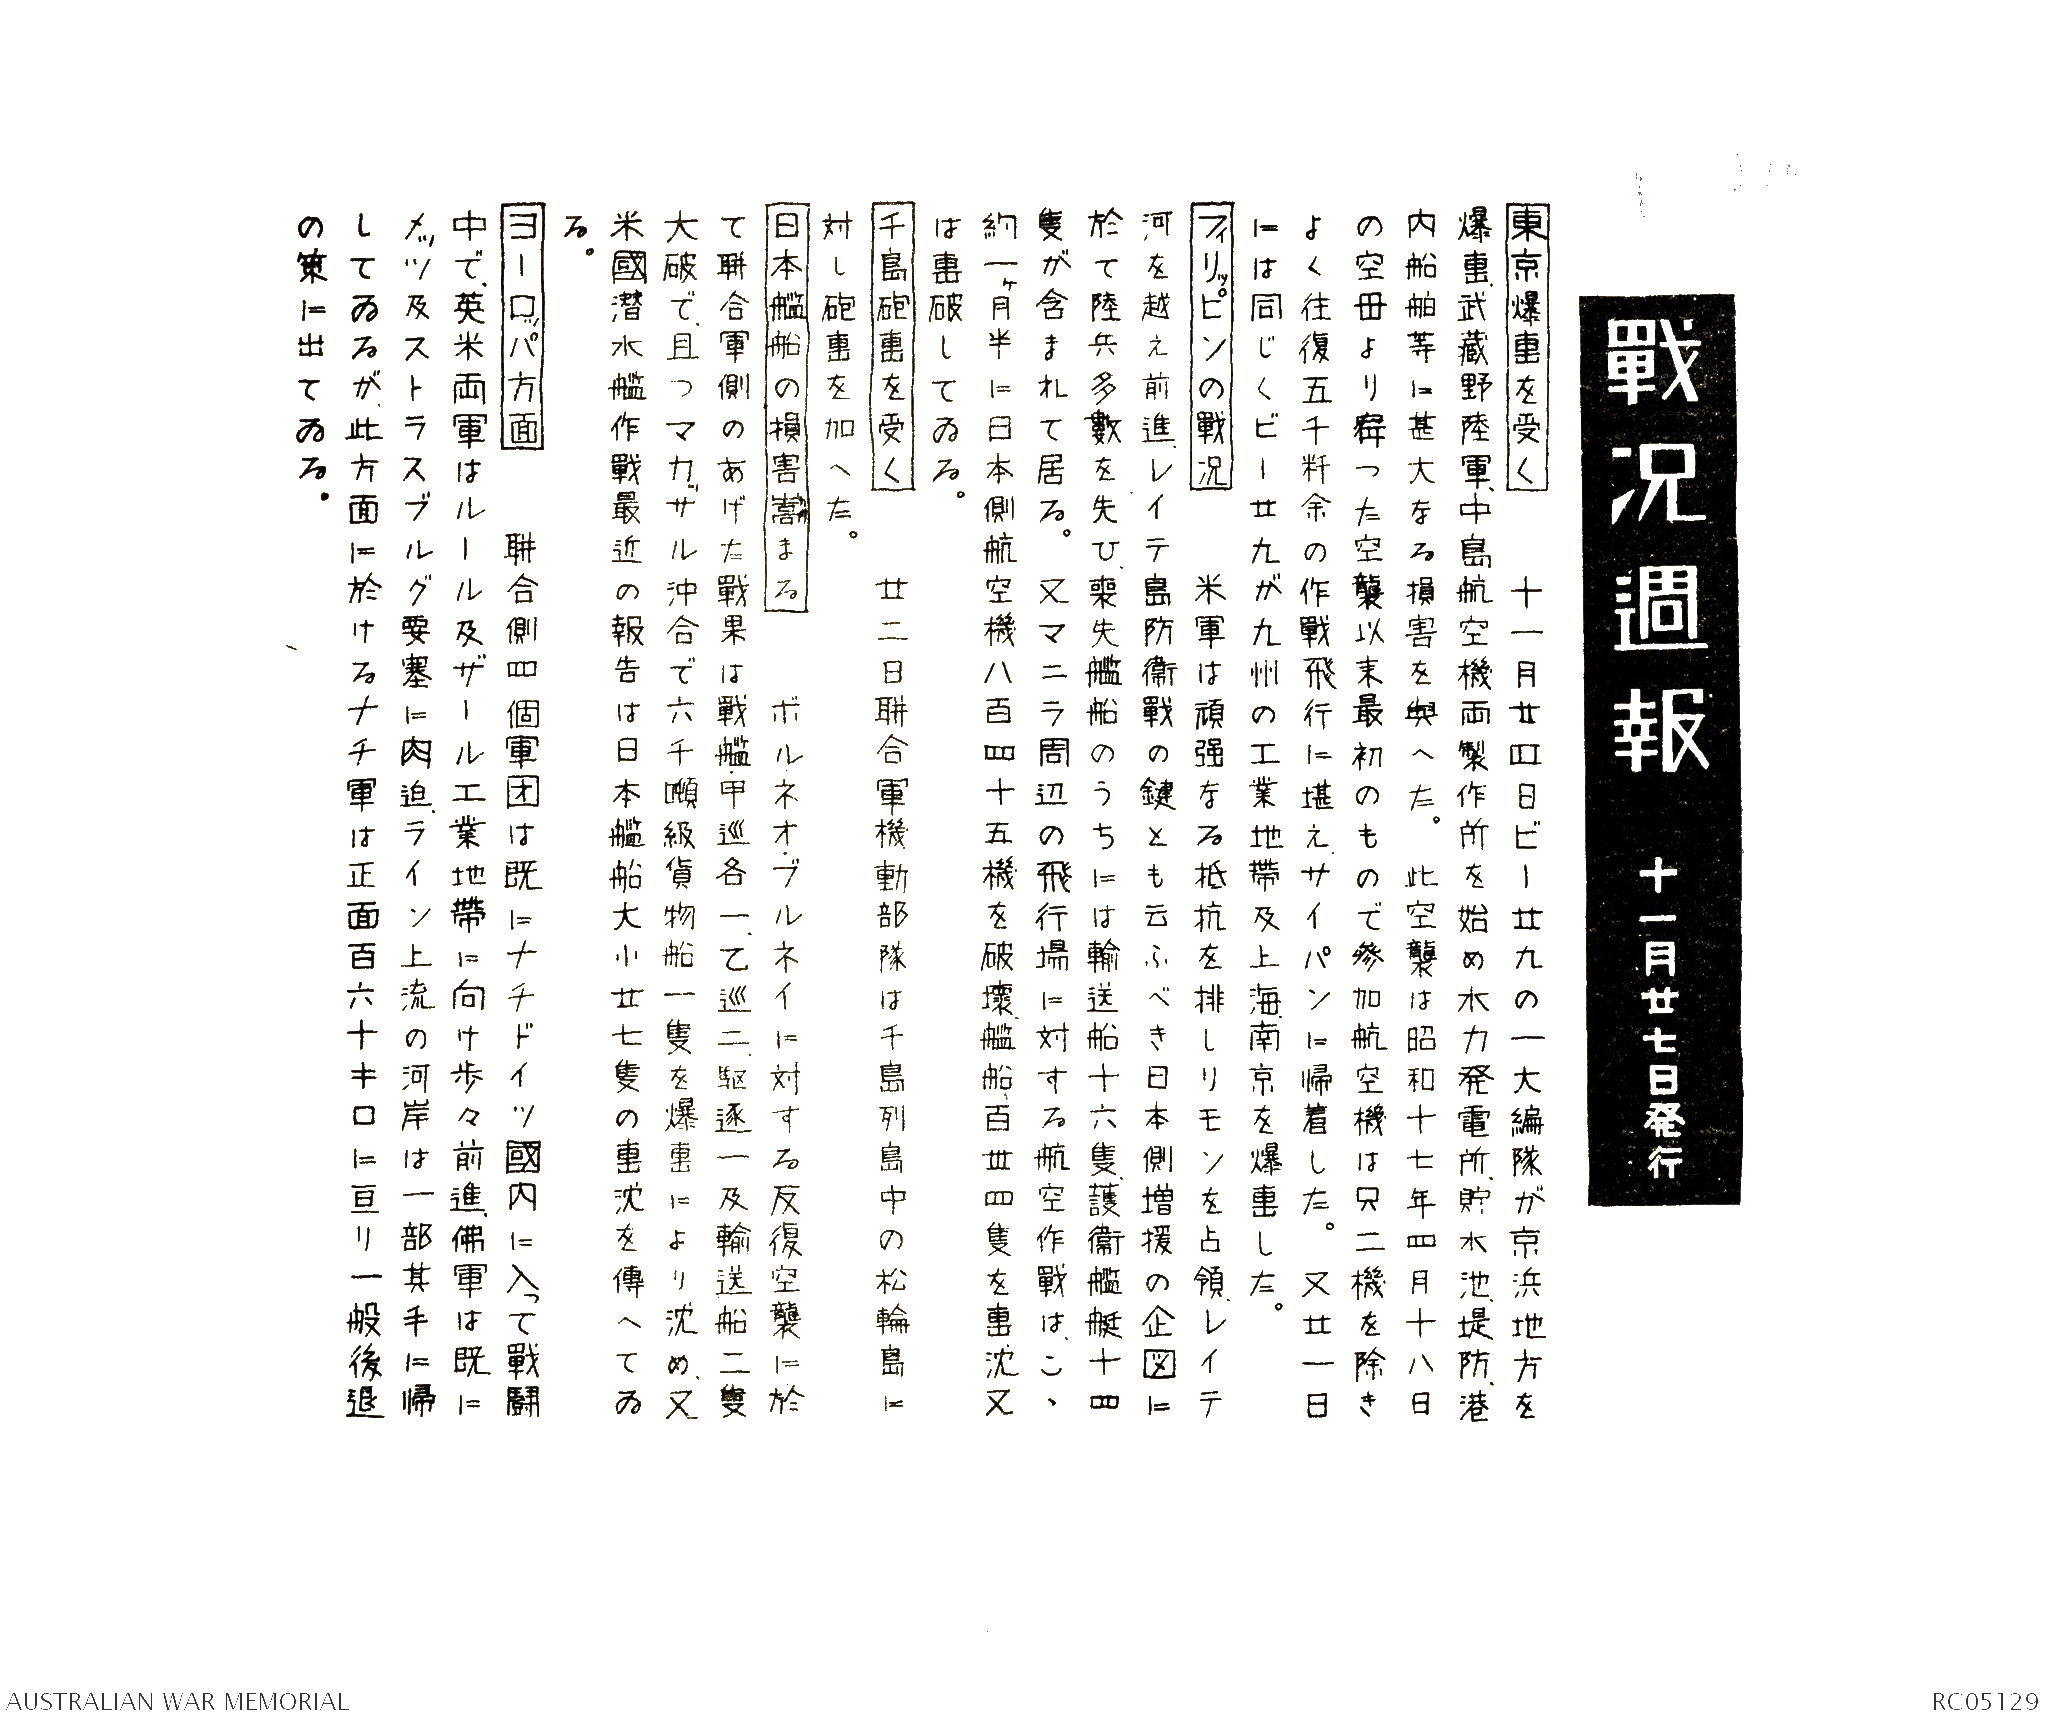 戰況週報　十一月廿七日発行
東京爆軎を受く　十一月廿四日ビー廿九の一大編隊が京浜地方を
爆軎、武蔵野陸軍、中島航空機両製作所を始め水力発電所、貯水池、堤防、港
内船舶等に甚大なる損害を與へた。此空襲は昭和十七年四月十八日
の空母より舜つた空襲以来最初のもので参加航空機は只二機を除き
よく往復五千粁余の作戰飛行に堪え、サイパンに帰着した。又廿一日
には同じくビー廿九が九州の工業地帯及上海、南京を爆軎した。
フィリッピンの戰況　米軍は頑强なる抵抗を排しリモンを占領、レイテ
河を越え前進、レイテ島防衞戰の鍵とも云ふべき日本側増援の企図に
於て陸兵多數を失ひ、喪失艦船のうちには輸送船十六隻、護衞艦艇十四
隻が含まれて居る。又マニラ周辺の飛行場に対する航空作戰は、こゝ
約一ヶ月半に日本側航空機八百四十五機を破壞、艦船百卅四隻を軎沈又
は軎破してゐる。
千島砲軎を受く　廿二日聨合軍機動部隊は千島列島中の松輪島に
対し砲軎を加へた。
日本艦船の損害嵩まる　ボルネオ・ブルネイに対する反復空襲に於
て聨合軍側のあげた戰果は戰艦・甲巡各一、乙巡二、駆逐一及輸送船二隻
大破で、且つマカザル沖合で六千噸級貨物船一隻を爆軎により沈め、又
米國潜水艦作戰最近の報告は日本艦船大小廿七隻の軎沈を傳へてゐ
る。
ヨーロッパ方面　聨合側四個軍団は既にナチドイツ國内に入って戰闘
中で、英米両軍はルール及ザール工業地帶に向け歩々前進、佛軍は既に
メッツ及ストラスブルグ要塞に肉迫、ライン上流の河岸は一部其手に帰
してゐるが、此方面に於けるナチ軍は正面百六十キロに亘リ一般後退
の策に出てゐる．
AUSTRALIAN WAR MEMORIAL
RC05129